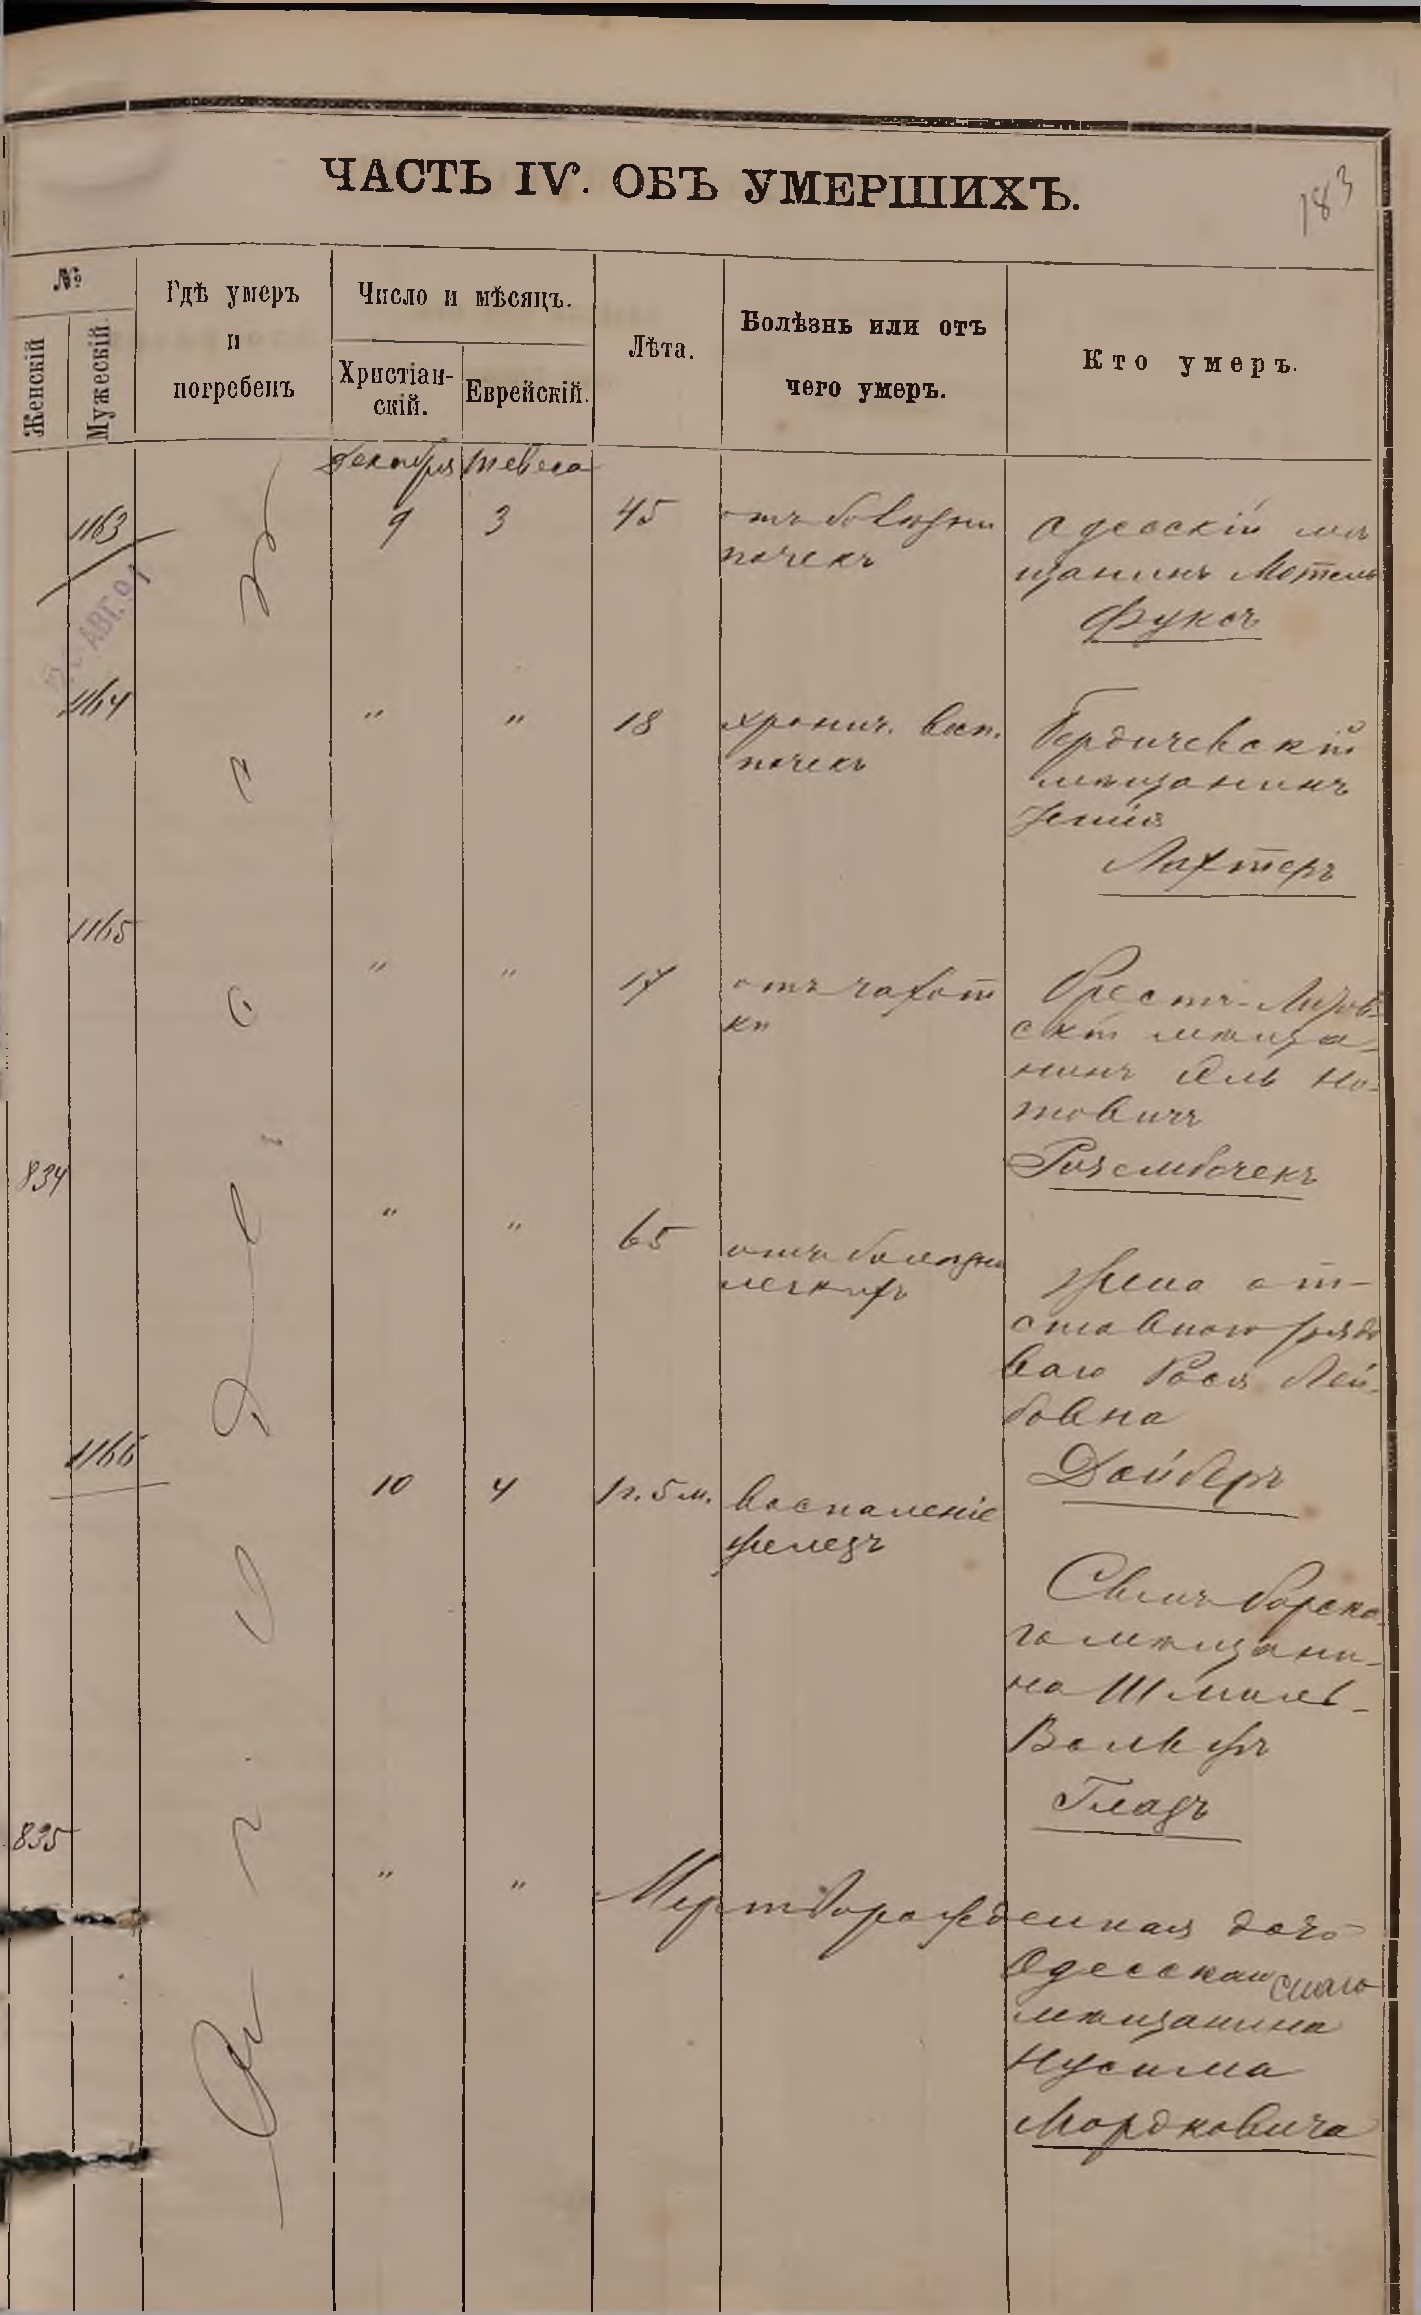 ЧАСТЬ IV. ОБЪ УМЕРШИХЪ.
183
№
Женскій
Мужескій
Гдѣ умеръ
и
погребенъ
Число и мѣсяцъ.
Христіан-
скій.
Еврейскій.
Лѣта.
Болѣзнь или отъ
чего умеръ.
Кто умеръ.
Декабря Тевеса
1163
9 3 45
отъ болѣзни
почекъ
Одесскій мѣ
щанинъ Мотель
Фуксъ
АВГ. 91
1164
" " 18
хронич. Восп.
почекъ
Бердичевскій
мѣщанинъ
Лахтеръ
1165
" " 17
отъ чахот
ки
Брестъ-Литов-
скій мѣща-
нинъ Но-
товичъ
Розембочекъ
834
" " 65
отъ болѣзни
легкихъ
Жена от-
ставного рядо
вого Рося Лей-
бовна
Дайберъ
1166
10 4 1 г. 5 м.
воспаленіе
железъ
го мѣщани-
на Шмиль-
Вольфъ
Гладъ
835
" "
Мерт­ворожденная дочь
Одесскаго
мѣщанина
Нусима
Мордковича